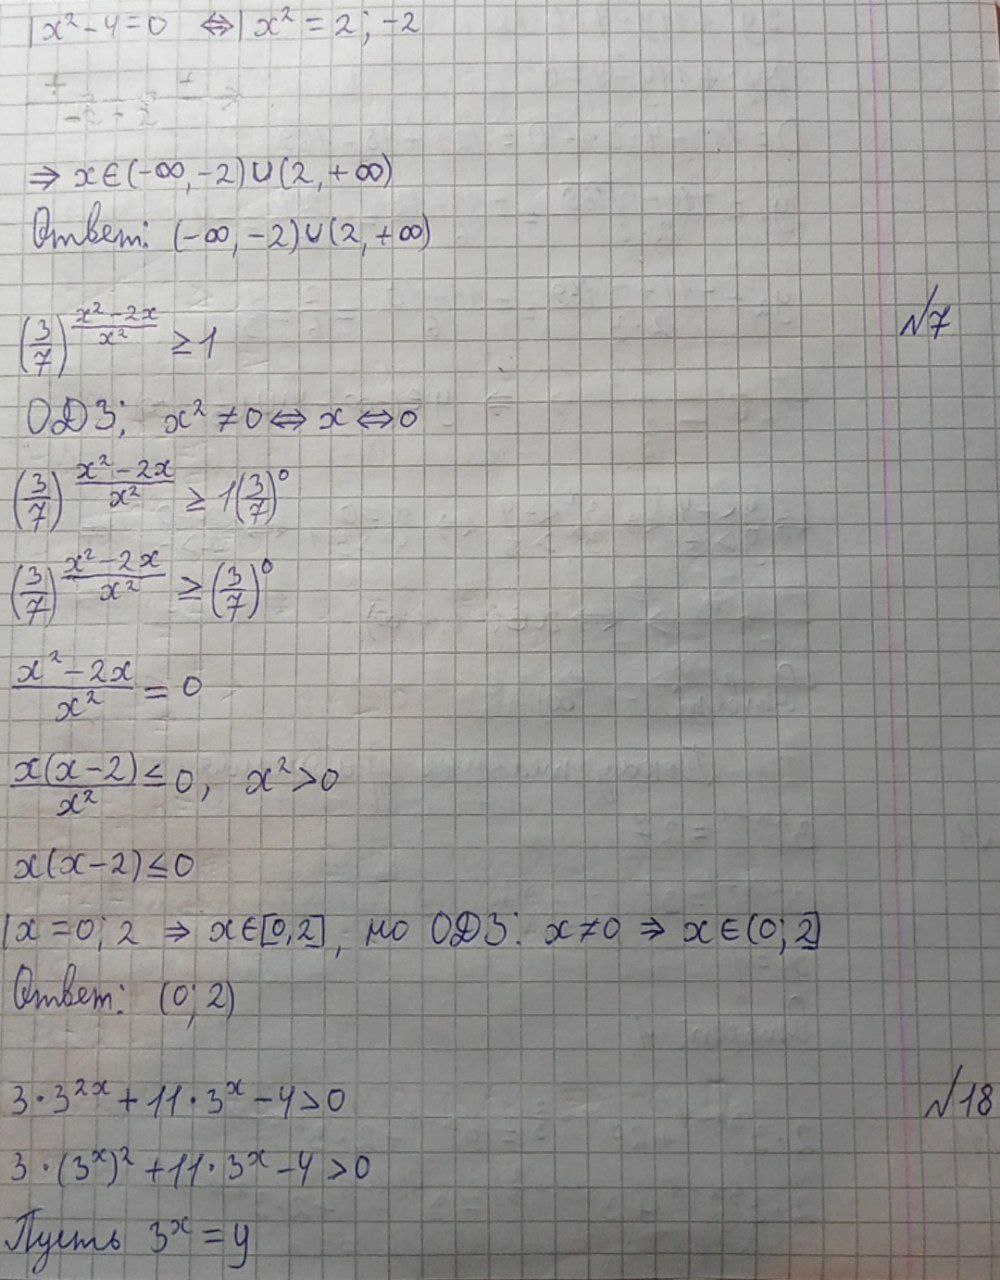 |x² - 4 = 0 ⇔ | x² = 2; -2
+ - +
-2 2
⇒ x ∈ (-∞, -2) ∪ (2, +∞)
Ответ: (-∞, -2) ∪ (2, +∞)
№7
(3/7)^((x² - 2x)/x²) ≥ 1
ОДЗ: x² ≠ 0 ⇔ x ⇔ 0
(3/7)^((x² - 2x)/x²) ≥ 1(3/7)⁰
(3/7)^((x² - 2x)/x²) ≥ (3/7)⁰
(x² - 2x)/x² = 0
x(x - 2)/x² ≤ 0, x² > 0
x(x - 2) ≤ 0
|x = 0; 2 ⇒ x ∈ [0, 2], но ОДЗ: x ≠ 0 ⇒ x ∈ (0; 2]
Ответ: (0; 2)
№18
3 · 3^(2x) + 11 · 3^x - 4 > 0
3 · (3^x)² + 11 · 3^x - 4 > 0
Пусть 3^x = y